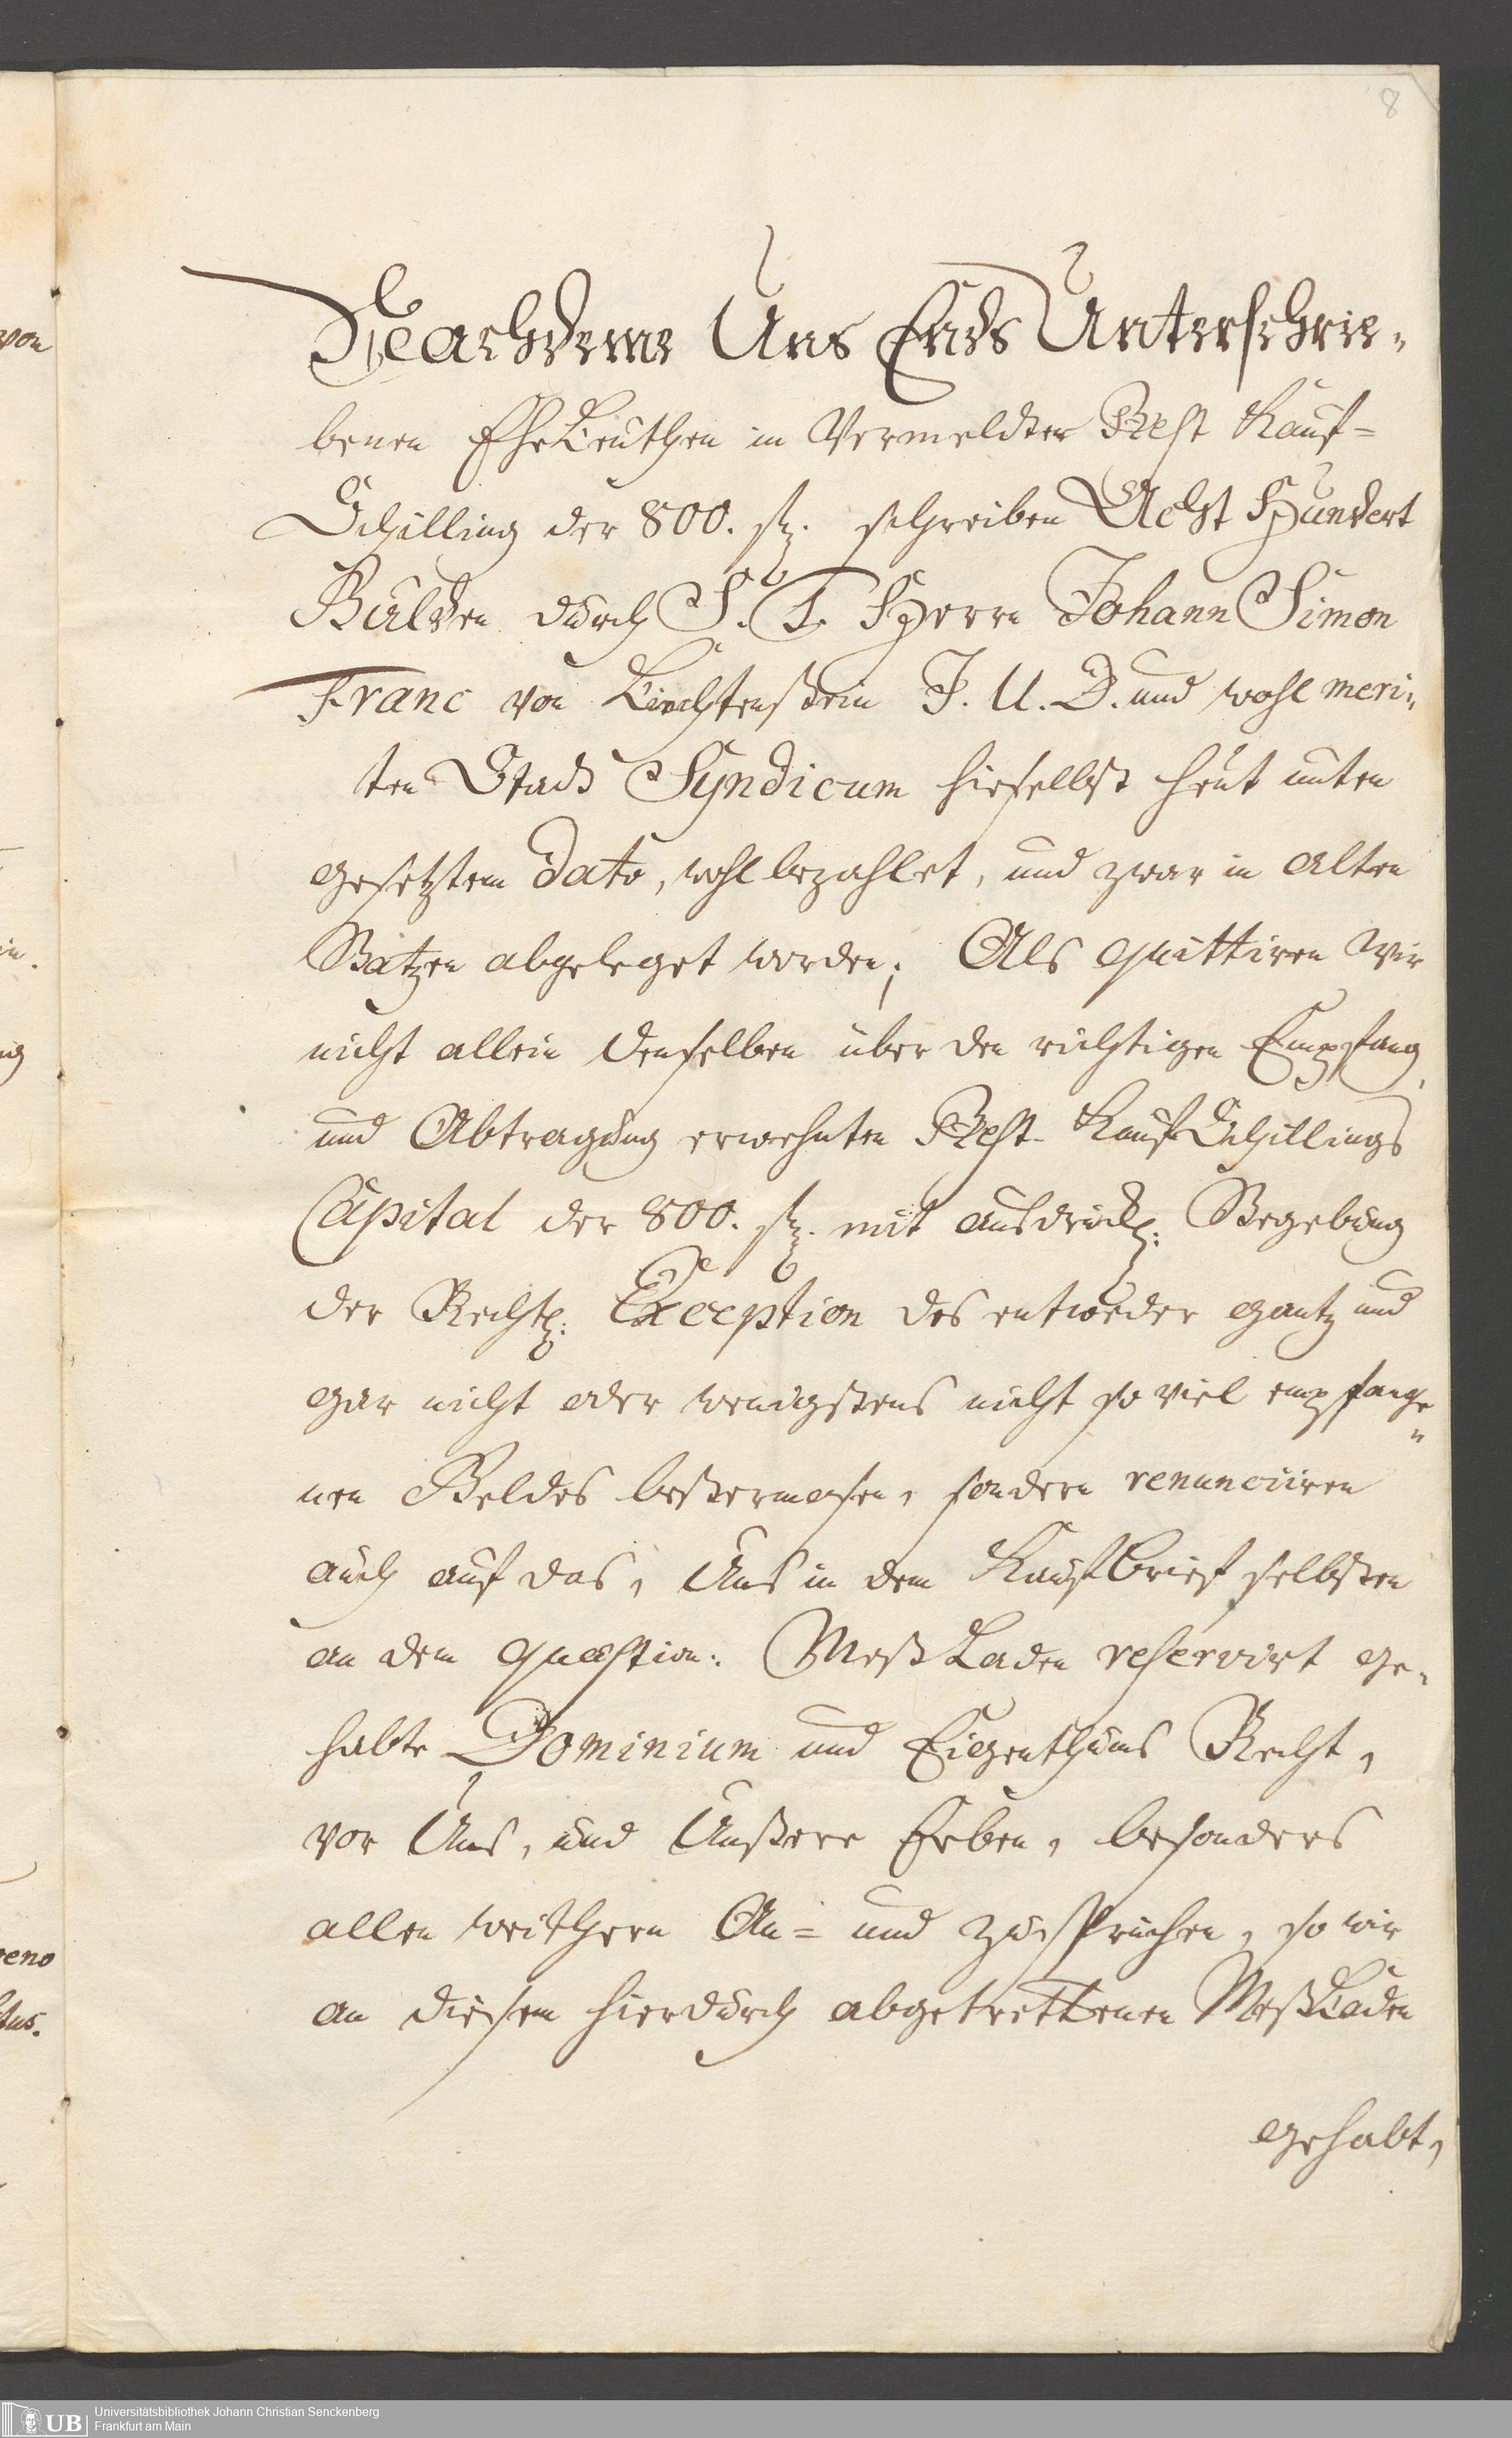 8
Nachdeme Uns Ends Unterschrie-
benen EheLeuthen in Vermeldter Rest Kauf=
Schilling der 800. fl. schreiben Acht Hundert
Gulden durch S. T. Herrn Johann Simon
Franc von Liechtenstein J. U. D. und wohl meri-
ten Stadt Syndicum hieselbst heut unten
gesetztem dato, wohl bezahlet, und zwar in alten
Batzen abgeleget worden; Als quittiren Wir
nicht allein denselben über den richtigen Empfang
und Abtragung erwehnten Rest-KaufSchillings
Capital der 800. fl. mit ausdrückl: Begebung
der Rechtl: Exception des entweder gantz und
gar nicht oder wenigstens nicht so viel empfange-
nen Geldes bestermasen, sondern renunciiren
auch auf das, Uns in dem Kaufbrief selbsten
an dem quæstion: MeßLaden reservirt ge-
habte Dominium und Eigenthums Recht,
vor Uns, und Unßere Erben, besonders
allen weithern An= und zuspruchen, so wir
an diesem hierdurch abgetrettenen MeßLaden
gehabt,
von
in.
reno
tus.
UB
Universitätsbibliothek Johann Christian Senckenberg
Frankfurt am Main